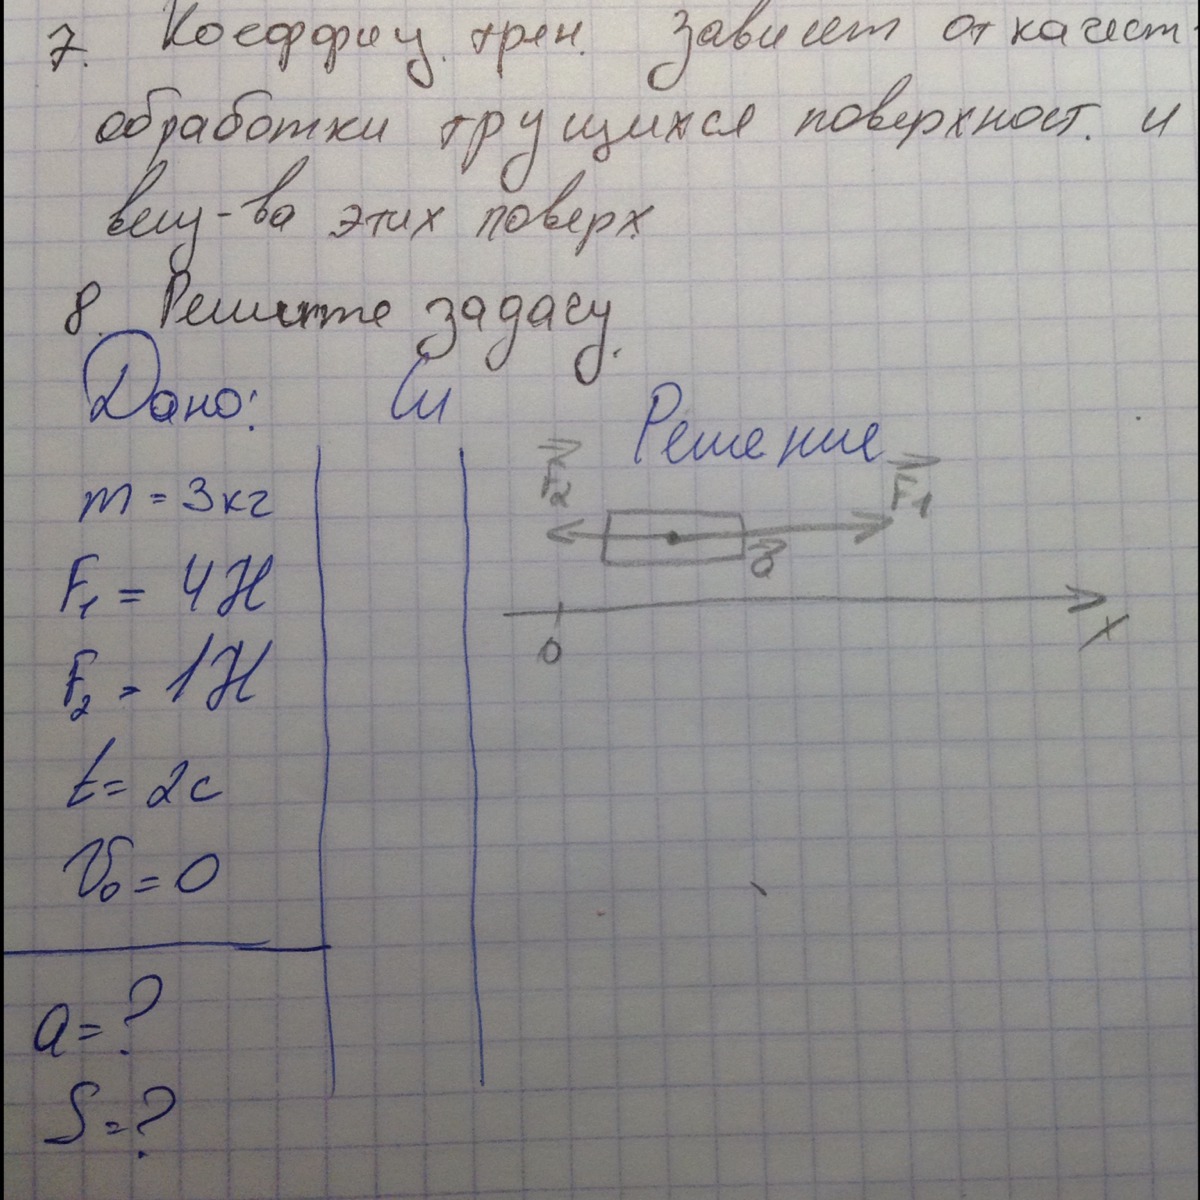 7. Коеффиц. трен. зависет от качест-
обработки трущихся поверхност. и
вещ-ва этих поверх.
8. Решите задачу.
Дано:
Си
Решение
m = 3кг
F₁ = 4Н
F₂ = 1Н
t = 2с
V₀ = 0
a = ?
S = ?
F₂
F₁
a
0
X